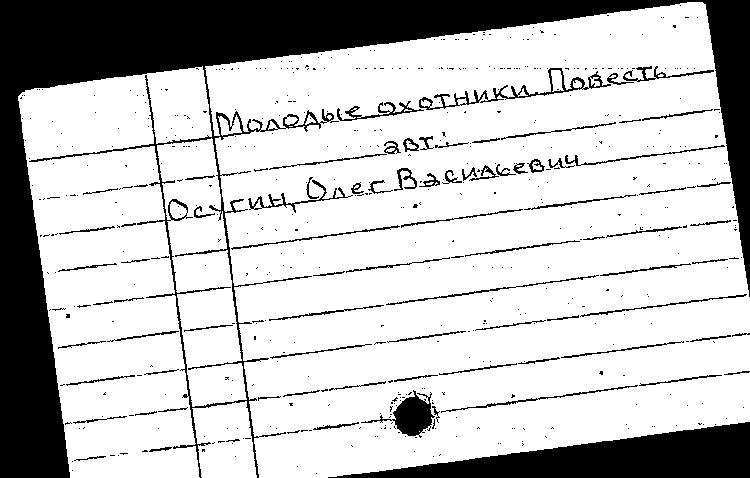 Молодые охотники. Повесть
авт.:
Осугин, Олег Васильевич